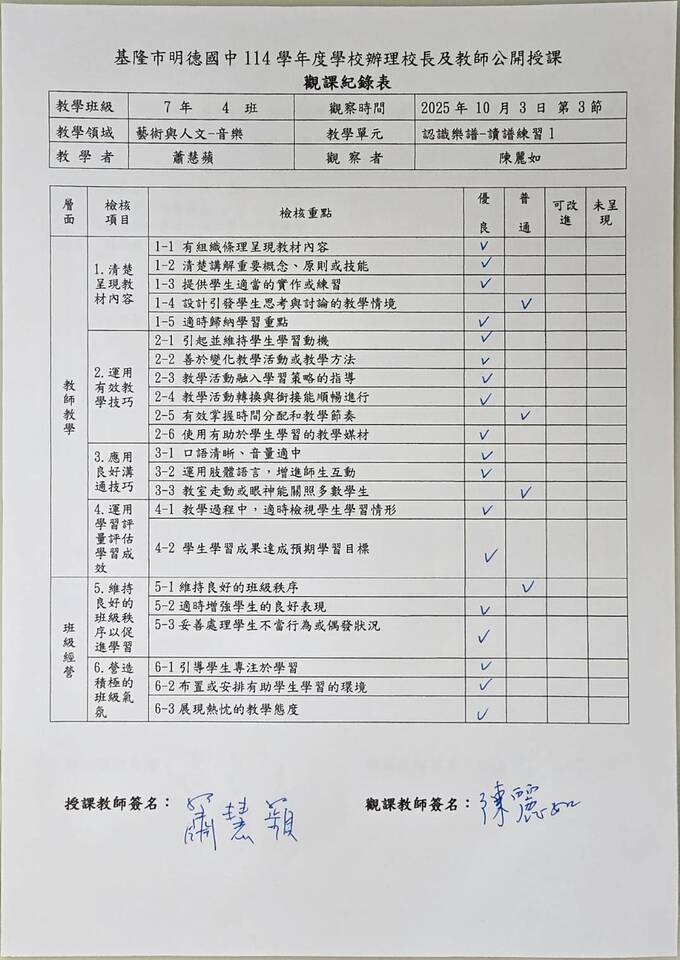 基隆市明德國中 114 學年度學校辦理校長及教師公開授課
觀課紀錄表
教學班級 7 年 4 班 觀察時間 2025 年 10 月 3 日 第 3 節
教學領域 藝術與人文-音樂 教學單元 認識樂譜-讀譜練習 1
教學者 蕭慧蘋 觀察者 陳麗如
層面 檢核項目 檢核重點 優良 普通 可改進 未呈現
教師教學
1.清楚呈現教材內容
1-1 有組織條理呈現教材內容 ✓
1-2 清楚講解重要概念、原則或技能 ✓
1-3 提供學生適當的實作或練習 ✓
1-4 設計引發學生思考與討論的教學情境 ✓
1-5 適時歸納學習重點 ✓
2.運用有效教學技巧
2-1 引起並維持學生學習動機 ✓
2-2 善於變化教學活動或教學方法 ✓
2-3 教學活動融入學習策略的指導 ✓
2-4 教學活動轉換與銜接能順暢進行 ✓
2-5 有效掌握時間分配和教學節奏 ✓
2-6 使用有助於學生學習的教學媒材 ✓
3.應用良好溝通技巧
3-1 口語清晰、音量適中 ✓
3-2 運用肢體語言，增進師生互動 ✓
3-3 教室走動或眼神能關照多數學生 ✓
4.運用學習評量評估學習成效
4-1 教學過程中，適時檢視學生學習情形 ✓
4-2 學生學習成果達成預期學習目標 ✓
班級經營
5.維持良好的班級秩序以促進學習
5-1 維持良好的班級秩序 ✓
5-2 適時增強學生的良好表現 ✓
5-3 妥善處理學生不當行為或偶發狀況 ✓
6.營造積極的班級氣氛
6-1 引導學生專注於學習 ✓
6-2 布置或安排有助學生學習的環境 ✓
6-3 展現熱忱的教學態度 ✓
授課教師簽名： 蕭慧蘋 觀課教師簽名： 陳麗如